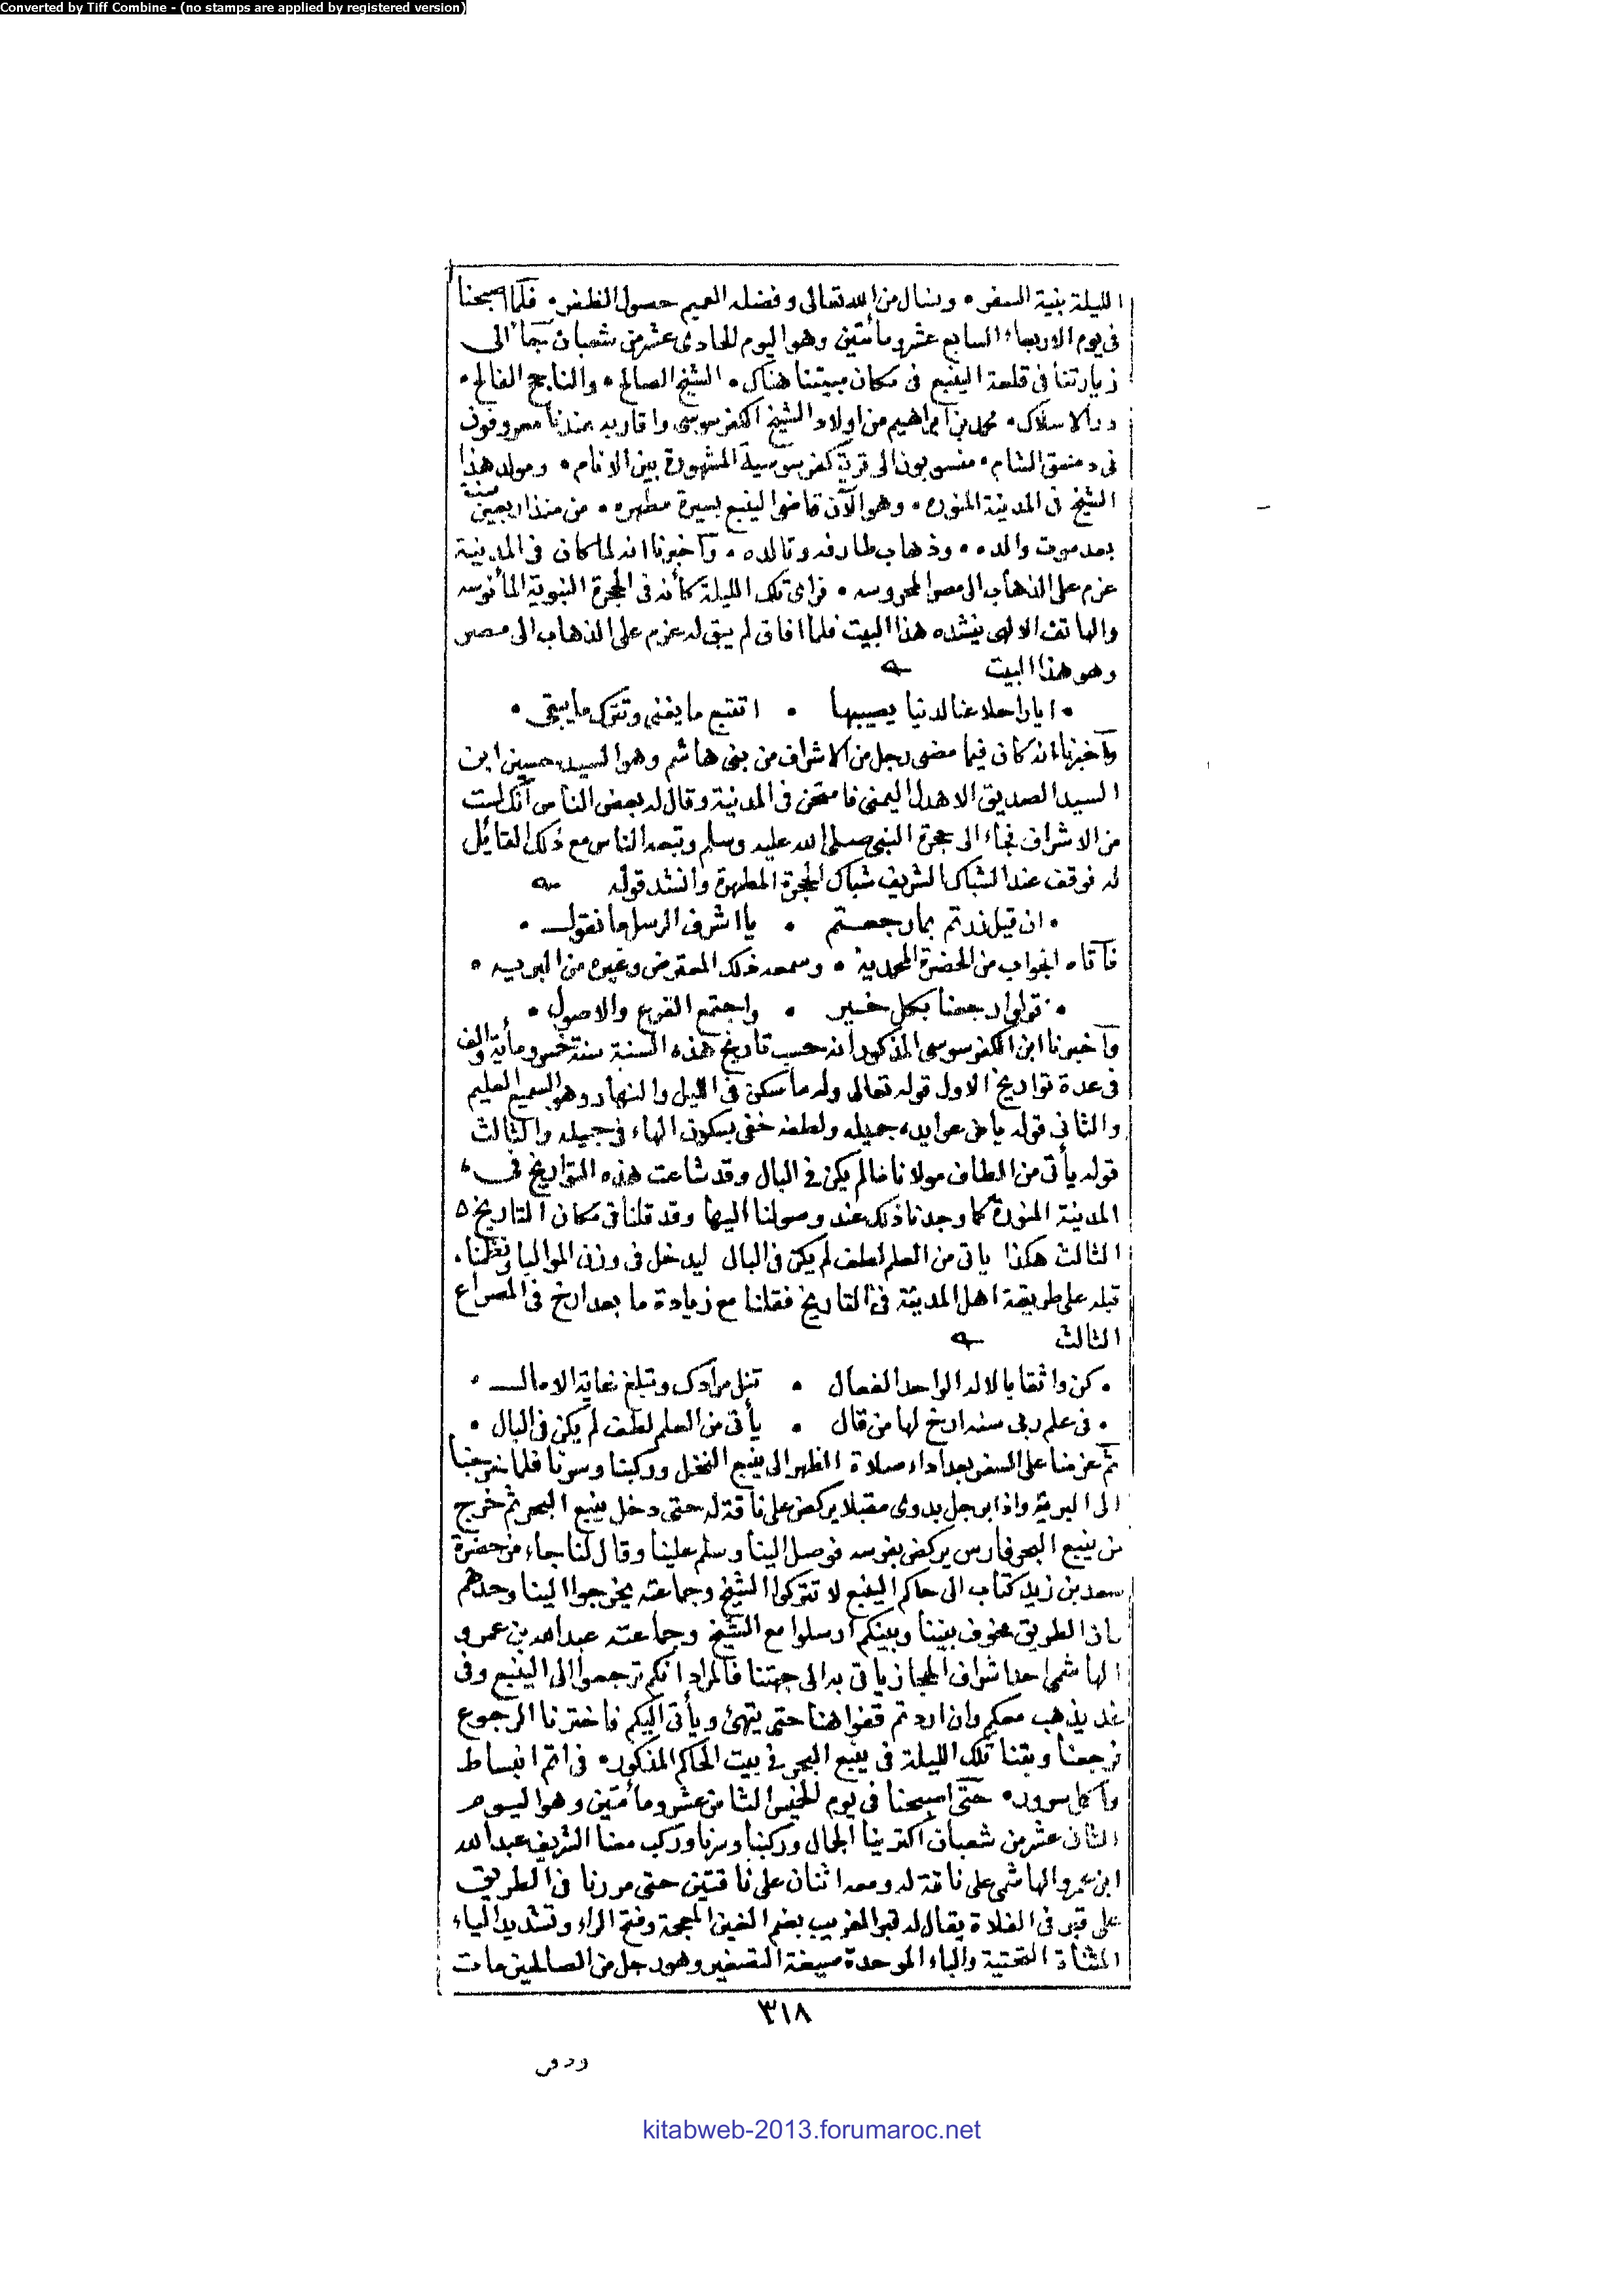 Converted by Tiff Combine - (no stamps are applied by registered version)
الليلة بنية السفر • ونسال من الله تعالى وفضله العميم حصول الظفر • فلما اصبحنا
فى يوم الاربعاء السابع عشر ومأتين وهو اليوم الحادى عشر من شعبان جاء الى
زيارتنا فى قلعة الينبع فى مكان مبيتنا هناك • الشيخ الصالح • والناجح الفالح •
در الاسلاك • محمد بن ابراهيم من اولاد الشيخ الكفرسوسى واقاربه عندنا معروفون
فى دمشق الشام • منسوبون الى قرية كفرسوسية المشهورة بين الانام • ومولد هذا
الشيخ فى المدينة المنوره • وهو الآن قاضى الينبع بسيرة مطهره • من منذ اربعين سنة
بعد موت والده • وذهاب طارفه وتالده • وآخبرنا انه لما كان فى المدينة
عزم على الذهاب الى مصر المحروسه • فراى تلك الليلة كأنه فى الحجرة النبوية المأنوسه
والهاتف الالهى ينشده هذا البيت فلما افاق لم يبق له عزم على الذهاب الى مصر
وهو هذا البيت
• ايا راحلا عنا لدنيا يصيبها • اتتبع ما يفنى وتترك ما يبقى •
وآخبرنا انه كان فيما مضى رجل من الاشراف من بنى هاشم وهو السيد حسين ابن
السيد الصديق الاهدل اليمنى فامتحن فى المدينة وقال له بعض الناس انك لست
من الاشراف فجاء الى حجرة النبى صلى الله عليه وسلم وتبعه الناس مع ذلك القائل
له فوقف عند الشباك الشريف شباك الحجرة المطهرة وانشد قوله
• ان قيل زرتم بما رجعتم • يا اشرف الرسل ما نقول •
فآتاه الجواب من الحضرة المحمدية • وسمعه ذلك المعترض وغيره من البريه •
• قولوا رجعنا بكل خير • واجتمع الفرع والاصول •
وآخبرنا ابن الكفرسوسى المذكور انه حسب تاريخ هذه السنة سنة خمس ومأية والف
فى عدة تواريخ الاول قوله تعالى وله ما سكن فى الليل والنهار وهو السميع العليم
والثانى قوله يا من عوايده جميله ولطفه خفى بسكون الهاء فى جميله والثالث
قوله يأتى من الطاف مولانا ما لم يكن فى البال وقد شاعت هذه التواريخ فى
المدينة المنورة كما وجدنا ذلك عند وصولنا اليها وقد قلنا فى مكان التاريخ
الثالث هكذا ياتى من العلم لطف لم يكن فى البال ليدخل فى وزن المواليا ونظمنا
قبله على طريقة اهل المدينة فى التاريخ فقلنا مع زيادة ما بعد ارخ فى المصراع
الثالث
• كن واثقا بالاله الواحد الفعال • تنل مرادك وتبلغ غاية الامال •
• فى علم ربى سنه ارخ لها من قال • يأتى من العلم لطف لم يكن فى البال •
ثم عزمنا على السفر بعد اداء صلاة الظهر الى ينبع النخل وركبنا وسرنا فلما خرجنا
الى البرية واذا برجل بدوى مقبلا يركض على ناقة له حتى دخل ينبع البحر ثم خرج
من ينبع البحر فارس يركض بفرسه فوصل الينا وسلم علينا وقال لنا جاء من حضرة
سعد بن زيد كتاب الى حاكم الينبع لا تتركوا الشيخ وجماعته يخرجوا الينا وحدهم
فان الطريق مخوف بيننا وبينكم ارسلوا مع الشيخ وجماعته عبد الله بن عمرو
الهاشمى احد اشراف الحجاز ياتى به الى جهتنا فالمراد انكم ترجعوا الى الينبع وفى
غد يذهب معكم وان اردتم قفوا هنا حتى يتهيئ ويأتى اليكم فاخترنا الرجوع
فرجعنا وبتنا تلك الليلة فى ينبع البحر فى بيت الحاكم المذكور • فى اتم انبساط
واكمل سرور • حتى اصبحنا فى يوم الخميس الثامن عشر ومأتين وهو اليوم
الثانى عشر من شعبان اكترينا الجمال وركبنا وسرنا وركب معنا الشريف عبد الله
ابن عمرو الهاشمى على ناقة له ومعه اثنان على ناقتين حتى مررنا فى الطريق
على قبر فى الفلاة يقال له قبر الغريب بضم الغين المعجمة وفتح الراء وتشديد الياء
المثناة التحتية والباء الموحدة صيغة التصغير وهو رجل من الصالحين مات
٣١٨
kitabweb-2013.forumaroc.net